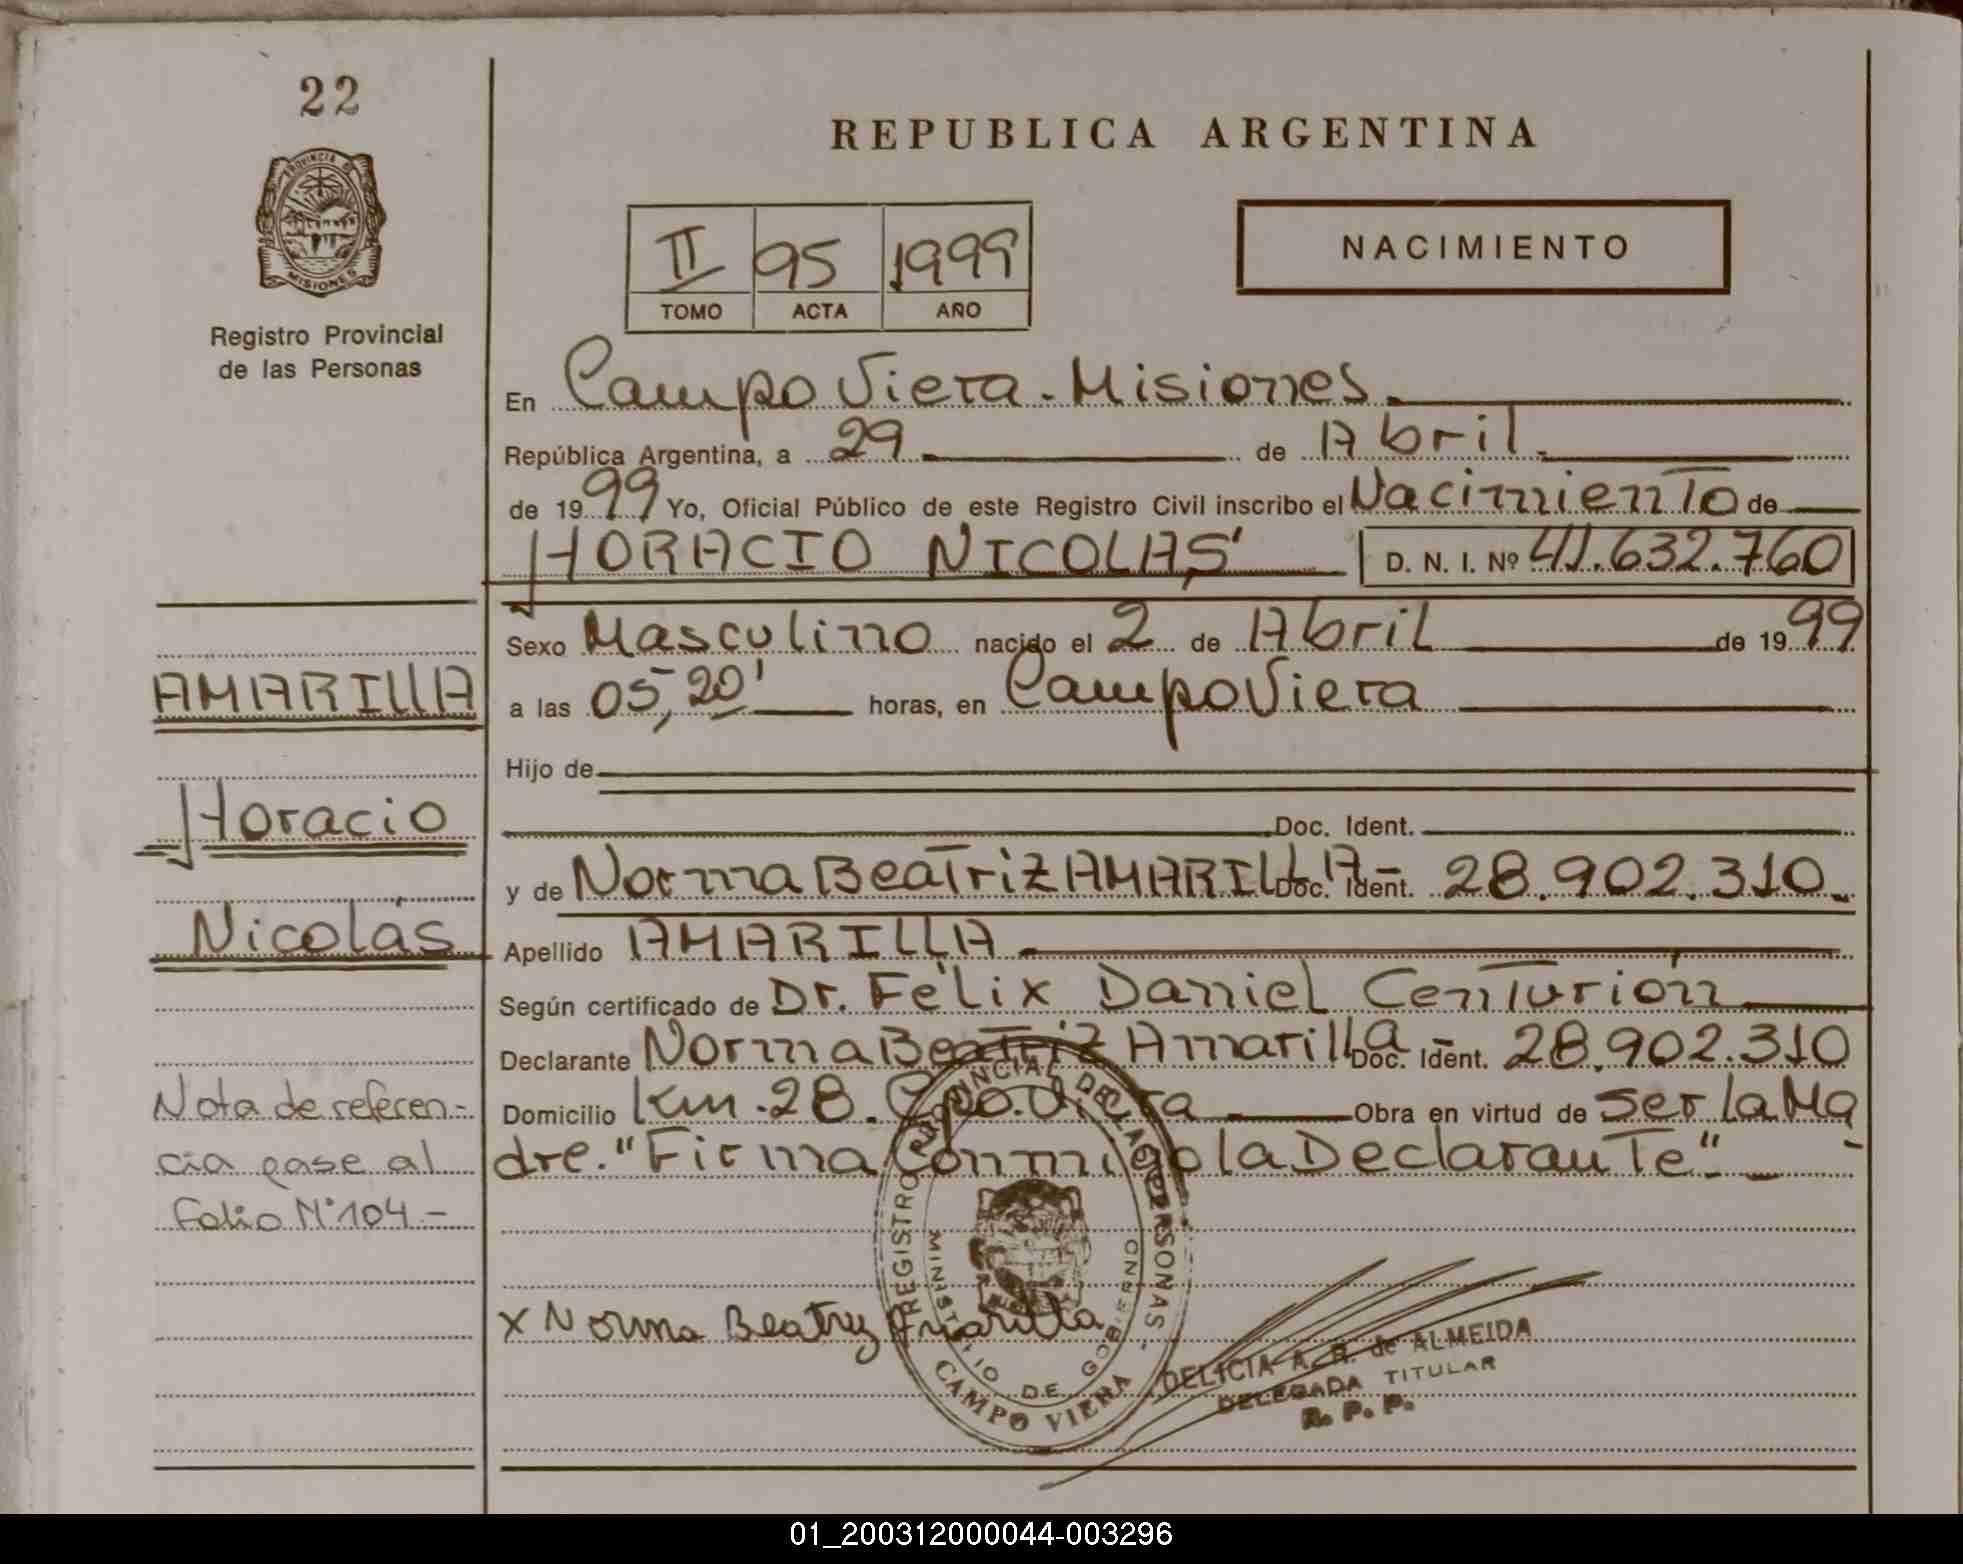 22
PROVINCIA DE
MISIONES
Registro Provincial
de las Personas
REPUBLICA ARGENTINA
II 95 1999
TOMO ACTA AÑO
NACIMIENTO
En Campo Viera - Misiones.
República Argentina, a 29 de Abril
de 1999 Yo, Oficial Público de este Registro Civil inscribo el Nacimiento de
HORACIO NICOLAS' D. N. I. Nº 41.632.760
Sexo Masculino nacido el 2 de Abril de 1999
a las 05,20' horas, en Campo Viera
Hijo de
Doc. Ident.
y de Norma Beatriz AMARILLA - Doc. Ident. 28.902.310.
Apellido AMARILLA
Según certificado de Dr. Félix Daniel Centurión
Declarante Norma Beatriz Amarilla Doc. Ident. 28.902.310
Domicilio Km. 28. Cpo. Viera Obra en virtud de ser la Ma
dre. "Firma Conmigo la Declarante" -
AMARILLA
Horacio
Nicolás
Nota de referen-
cia pase al
folio N° 104 -
x Norma Beatriz Amarilla
REGISTRO PROVINCIAL DE LAS PERSONAS -
MINISTERIO DE GOBIERNO
CAMPO VIERA
DELICIA A. R. de ALMEIDA
DELEGADA TITULAR
R. P. P.
01_200312000044-003296